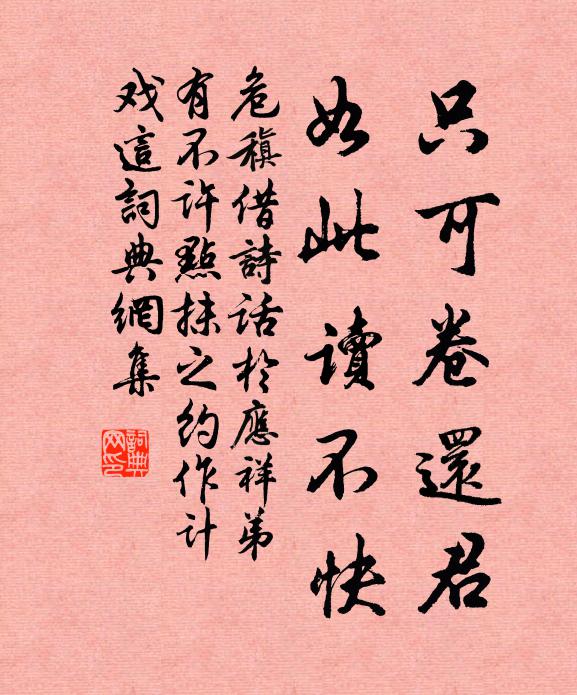 只可卷還君
如此讀不快
危稹借詩話於應祥弟
有不許點抹之約作計
戏這詞典網集
詞典
网印